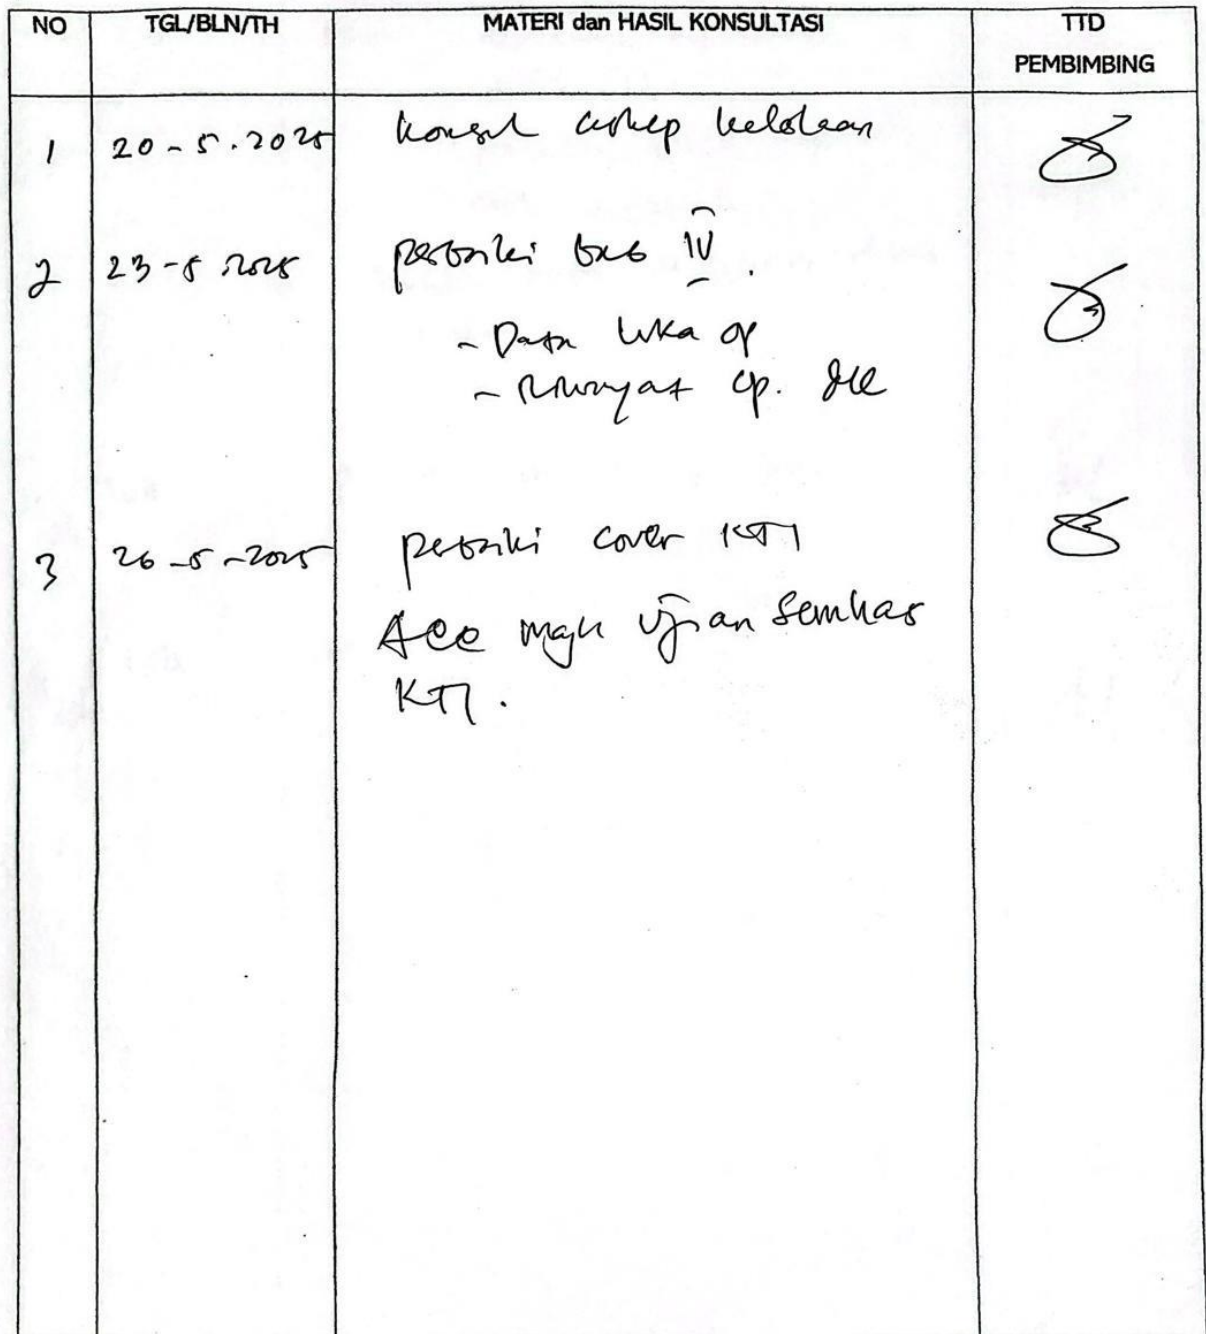 NO TGL/BLN/TH MATERI dan HASIL KONSULTASI TTD
PEMBIMBING
1 20-5-2025 konsul askep kelolaan
2 23-5-2025 perbaiki bab IV.
- Data luka op
- Riwayat op. dll
3 26-5-2025 perbaiki cover KTI
Acc maju ujian Semhas
KTI.